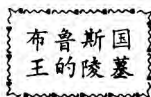 布鲁斯国
王的陵墓